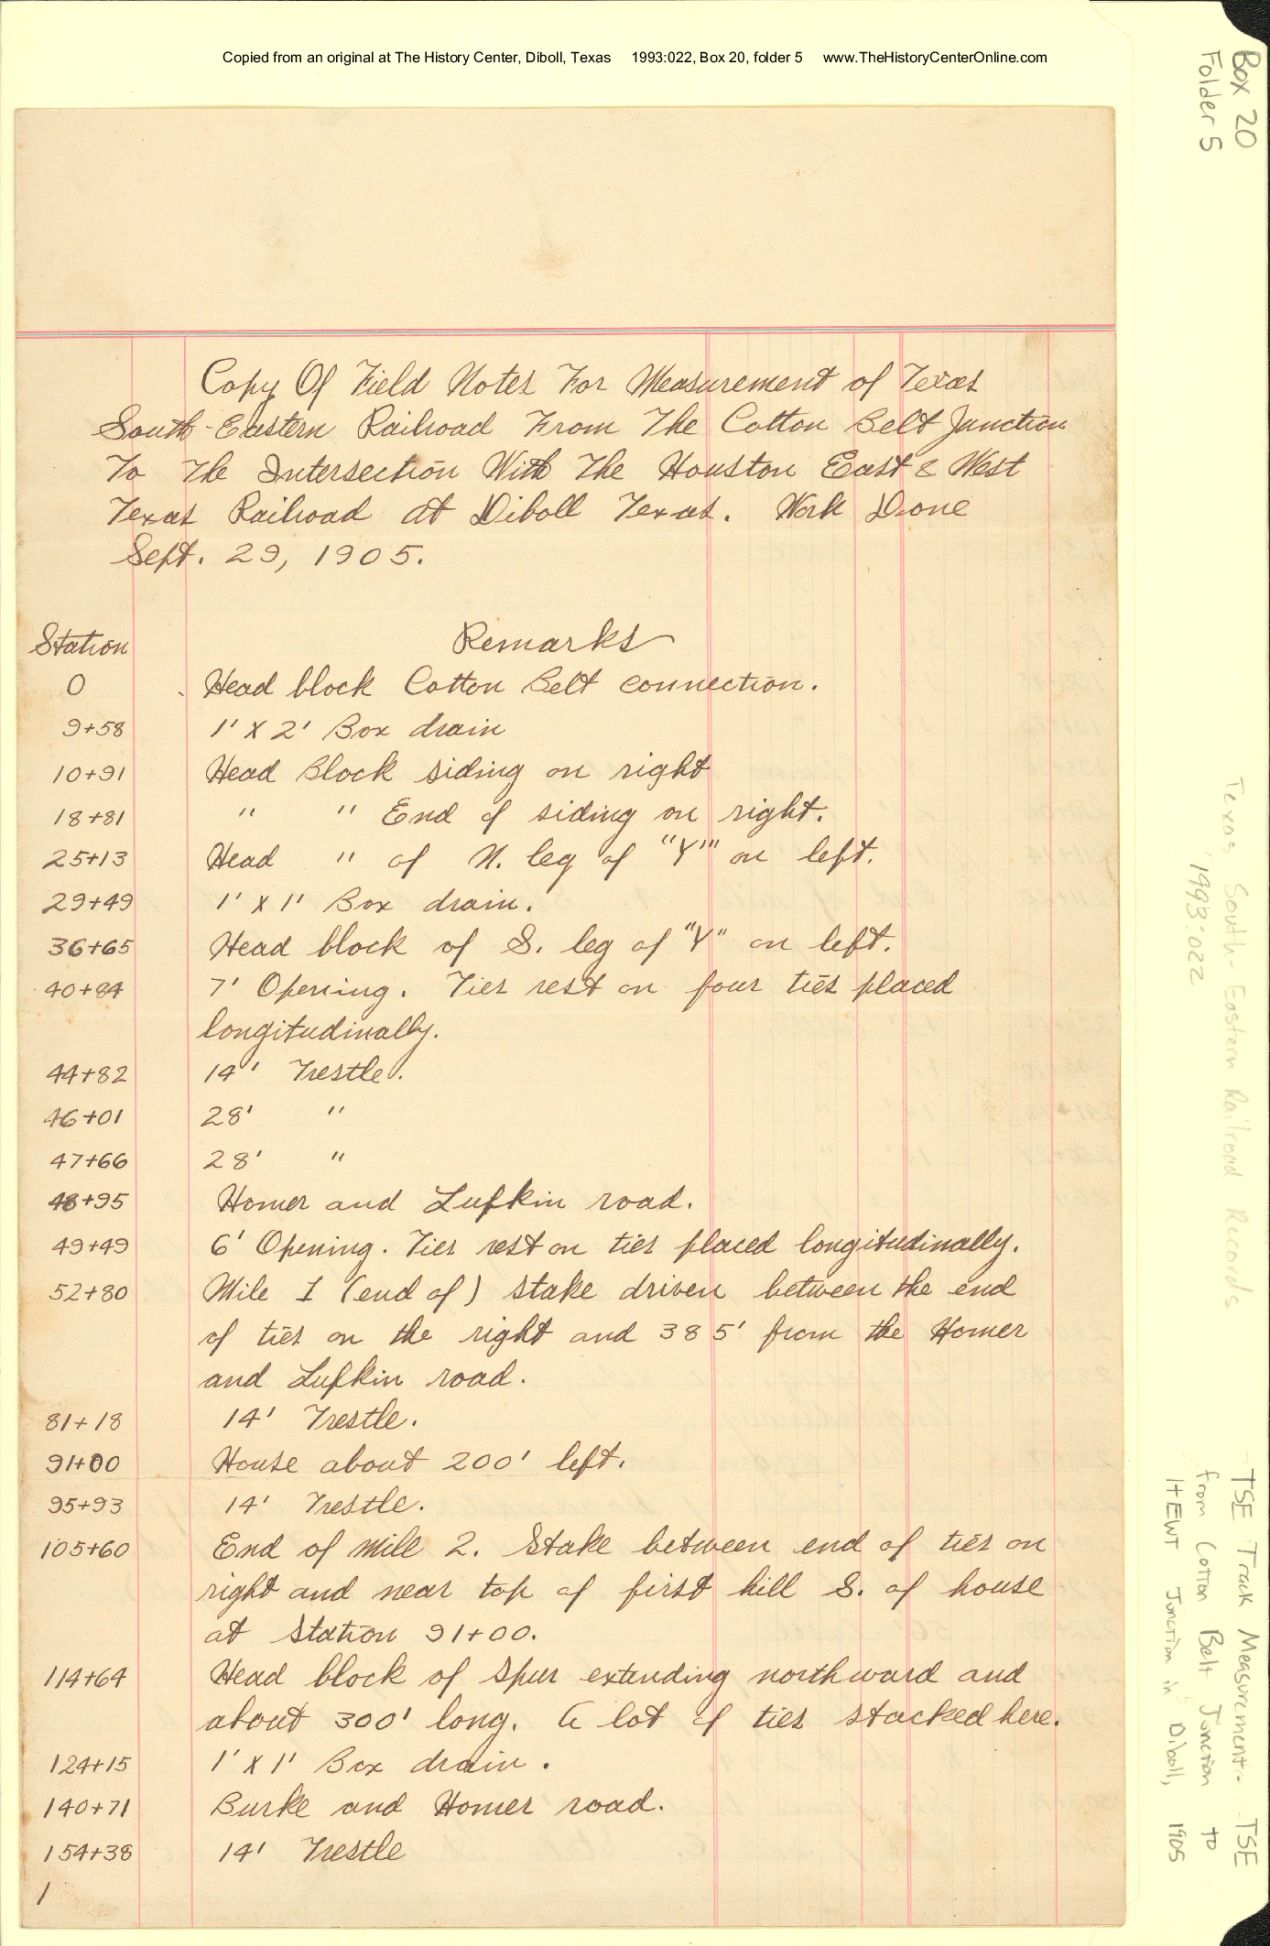 Copied from an original at The History Center, Diboll, Texas 1993:022, Box 20, folder 5 www.TheHistoryCenterOnline.com
Box 20
Folder 5
Copy Of Field Notes For Measurement of Texas
South-Eastern Railroad From The Cotton Belt Junction
To The Intersection With The Houston East & West
Texas Railroad at Diboll Texas. Work Done
Sept. 29, 1905.
Station Remarks
0 Head block Cotton Belt connection.
9+58 1' X 2' Box drain
10+91 Head Block siding on right
18+81 " " End of siding on right.
25+13 Head " of N. leg of "Y" on left.
29+49 1' X 1' Box drain.
36+65 Head block of S. leg of "Y" on left.
40+84 7' Opening. Ties rest on four ties placed
longitudinally.
44+82 14' Trestle.
46+01 28' "
47+66 28' "
48+95 Homer and Lufkin road.
49+49 6' Opening. Ties rest on ties placed longitudinally.
52+80 Mile 1 (end of) stake driven between the end
of ties on the right and 385' from the Homer
and Lufkin road.
81+18 14' Trestle.
91+00 House about 200' left.
95+93 14' Trestle.
105+60 End of mile 2. Stake between end of ties on
right and near top of first hill S. of house
at station 91+00.
114+64 Head block of spur extending northward and
about 300' long. A lot of ties stacked here.
124+15 1' X 1' Box drain.
140+71 Burke and Homer road.
154+38 14' Trestle
1
Texas South-Eastern Railroad Records
1993:022
TSE Track Measurement. TSE
from Cotton Belt Junction to
HEWT Junction in Diboll, 1905